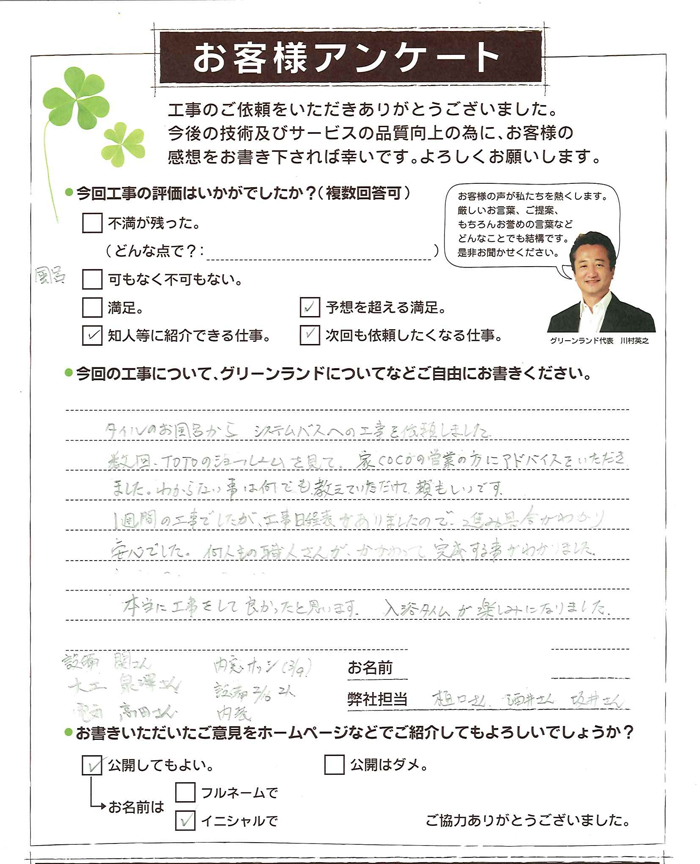 お客様アンケート
工事のご依頼をいただきありがとうございました。
今後の技術及びサービスの品質向上の為に、お客様の
感想をお書き下されば幸いです。よろしくお願いします。
●今回工事の評価はいかがでしたか？（複数回答可）
お客様の声が私たちを熱くします。
厳しいお言葉、ご提案、
もちろんお誉めの言葉など
どんなことでも結構です。
是非お聞かせください。
不満が残った。
（どんな点で？：）
風呂
可もなく不可もない。
満足。 ✓予想を超える満足。
✓知人等に紹介できる仕事。 ✓次回も依頼したくなる仕事。
グリーンランド代表 川村英之
●今回の工事について、グリーンランドについてなどご自由にお書きください。
タイルのお風呂から システムバスへの工事を依頼しました
数回、TOTOのショールームを見て、家COCOの営業の方にアドバイスをいただき
ました。わからない事は何でも教えていただけて頼もしいです。
1週間の工事でしたが、工事日程表がありましたので、進み具合がわかり
安心でした。何人もの職人さんが、かかわって完成する事がわかりました。
本当に工事をして良かったと思います。入浴タイムが楽しみになりました。
設備 関さん 内窓サッシ
大工 泉澤さん 設備 2人
電気 高田さん 内装
お名前
弊社担当 植口さん 酒井さん 坂井さん
●お書きいただいたご意見をホームページなどでご紹介してもよろしいでしょうか？
✓公開してもよい。 公開はダメ。
お名前は フルネームで
✓イニシャルで
ご協力ありがとうございました。